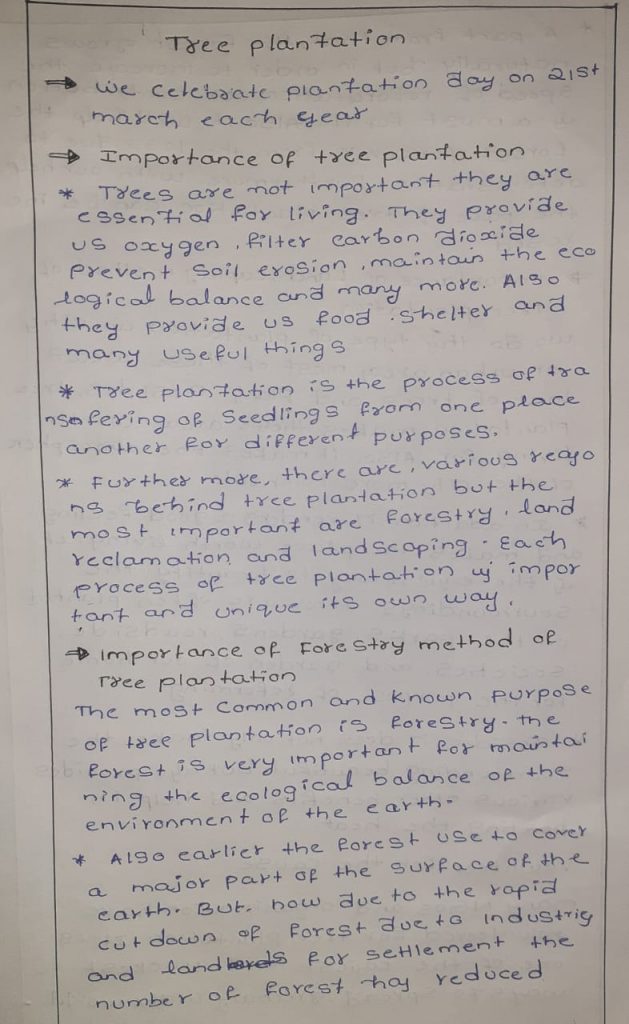 Tree plantation
⇒ we celebrate plantation day on 21st
march each year
⇒ Importance of tree plantation
* Trees are not important they are
essential for living. They provide
us oxygen, filter carbon dioxide
prevent soil erosion, maintain the eco
logical balance and many more. Also
they provide us food. shelter and
many useful things
* Tree plantation is the process of tra
nsofering of seedlings from one place
another for different purposes.
* Further more, there are, various reaso
ns behind tree plantation but the
most important are forestry, land
reclamation and landscaping. Each
process of tree plantation is impor
tant and unique its own way.
⇒ importance of Forestry method of
Tree plantation
The most common and known purpose
of tree plantation is forestry. the
forest is very important for maintai
ning the ecological balance of the
environment of the earth.
* Also earlier the forest use to cover
a major part of the surface of the
earth. But. now due to the rapid
cut down of forest due to industries
and land for settlement the
number of forest has reduced